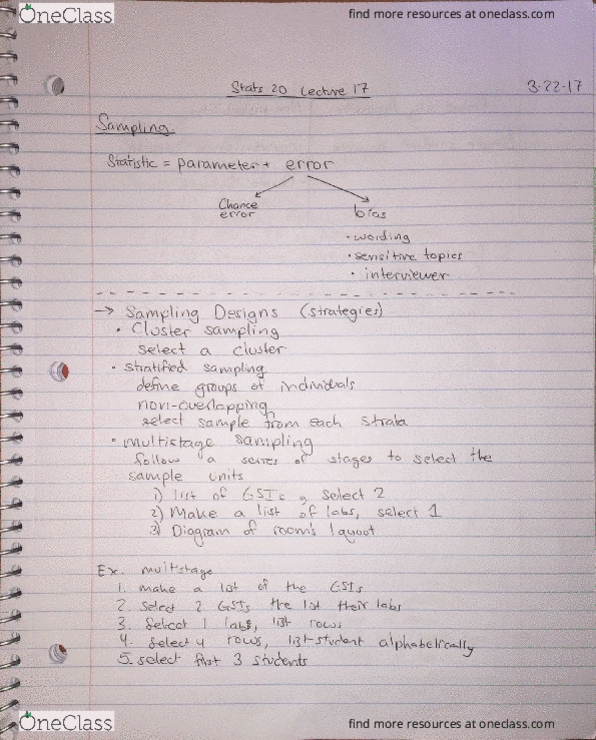 OneClass
find more resources at oneclass.com
Stats 20 Lecture 17
3-22-17
Sampling
Statistic = parameter + error
Chance error
bias
• wording
• sensitive topics
• interviewer
→ Sampling Designs (strategies)
• Cluster sampling
select a cluster
• stratified sampling
define groups of individuals
non-overlapping
select sample from each strata
• multistage sampling
follow a series of stages to select the
sample units
1) list of GSIs, select 2
2) Make a list of labs, select 1
3) Diagram of room's layout
Ex. multistage
1. make a list of the GSIs
2. Select 2 GSIs the list their labs
3. Select 1 labs, list rows
4. Select 4 rows, list student alphabetically
5. select first 3 students
OneClass
find more resources at oneclass.com